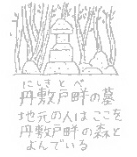 にしきとべ
丹敷戸畔の墓
地元の人はここを
丹敷戸畔の森と
よんでいる